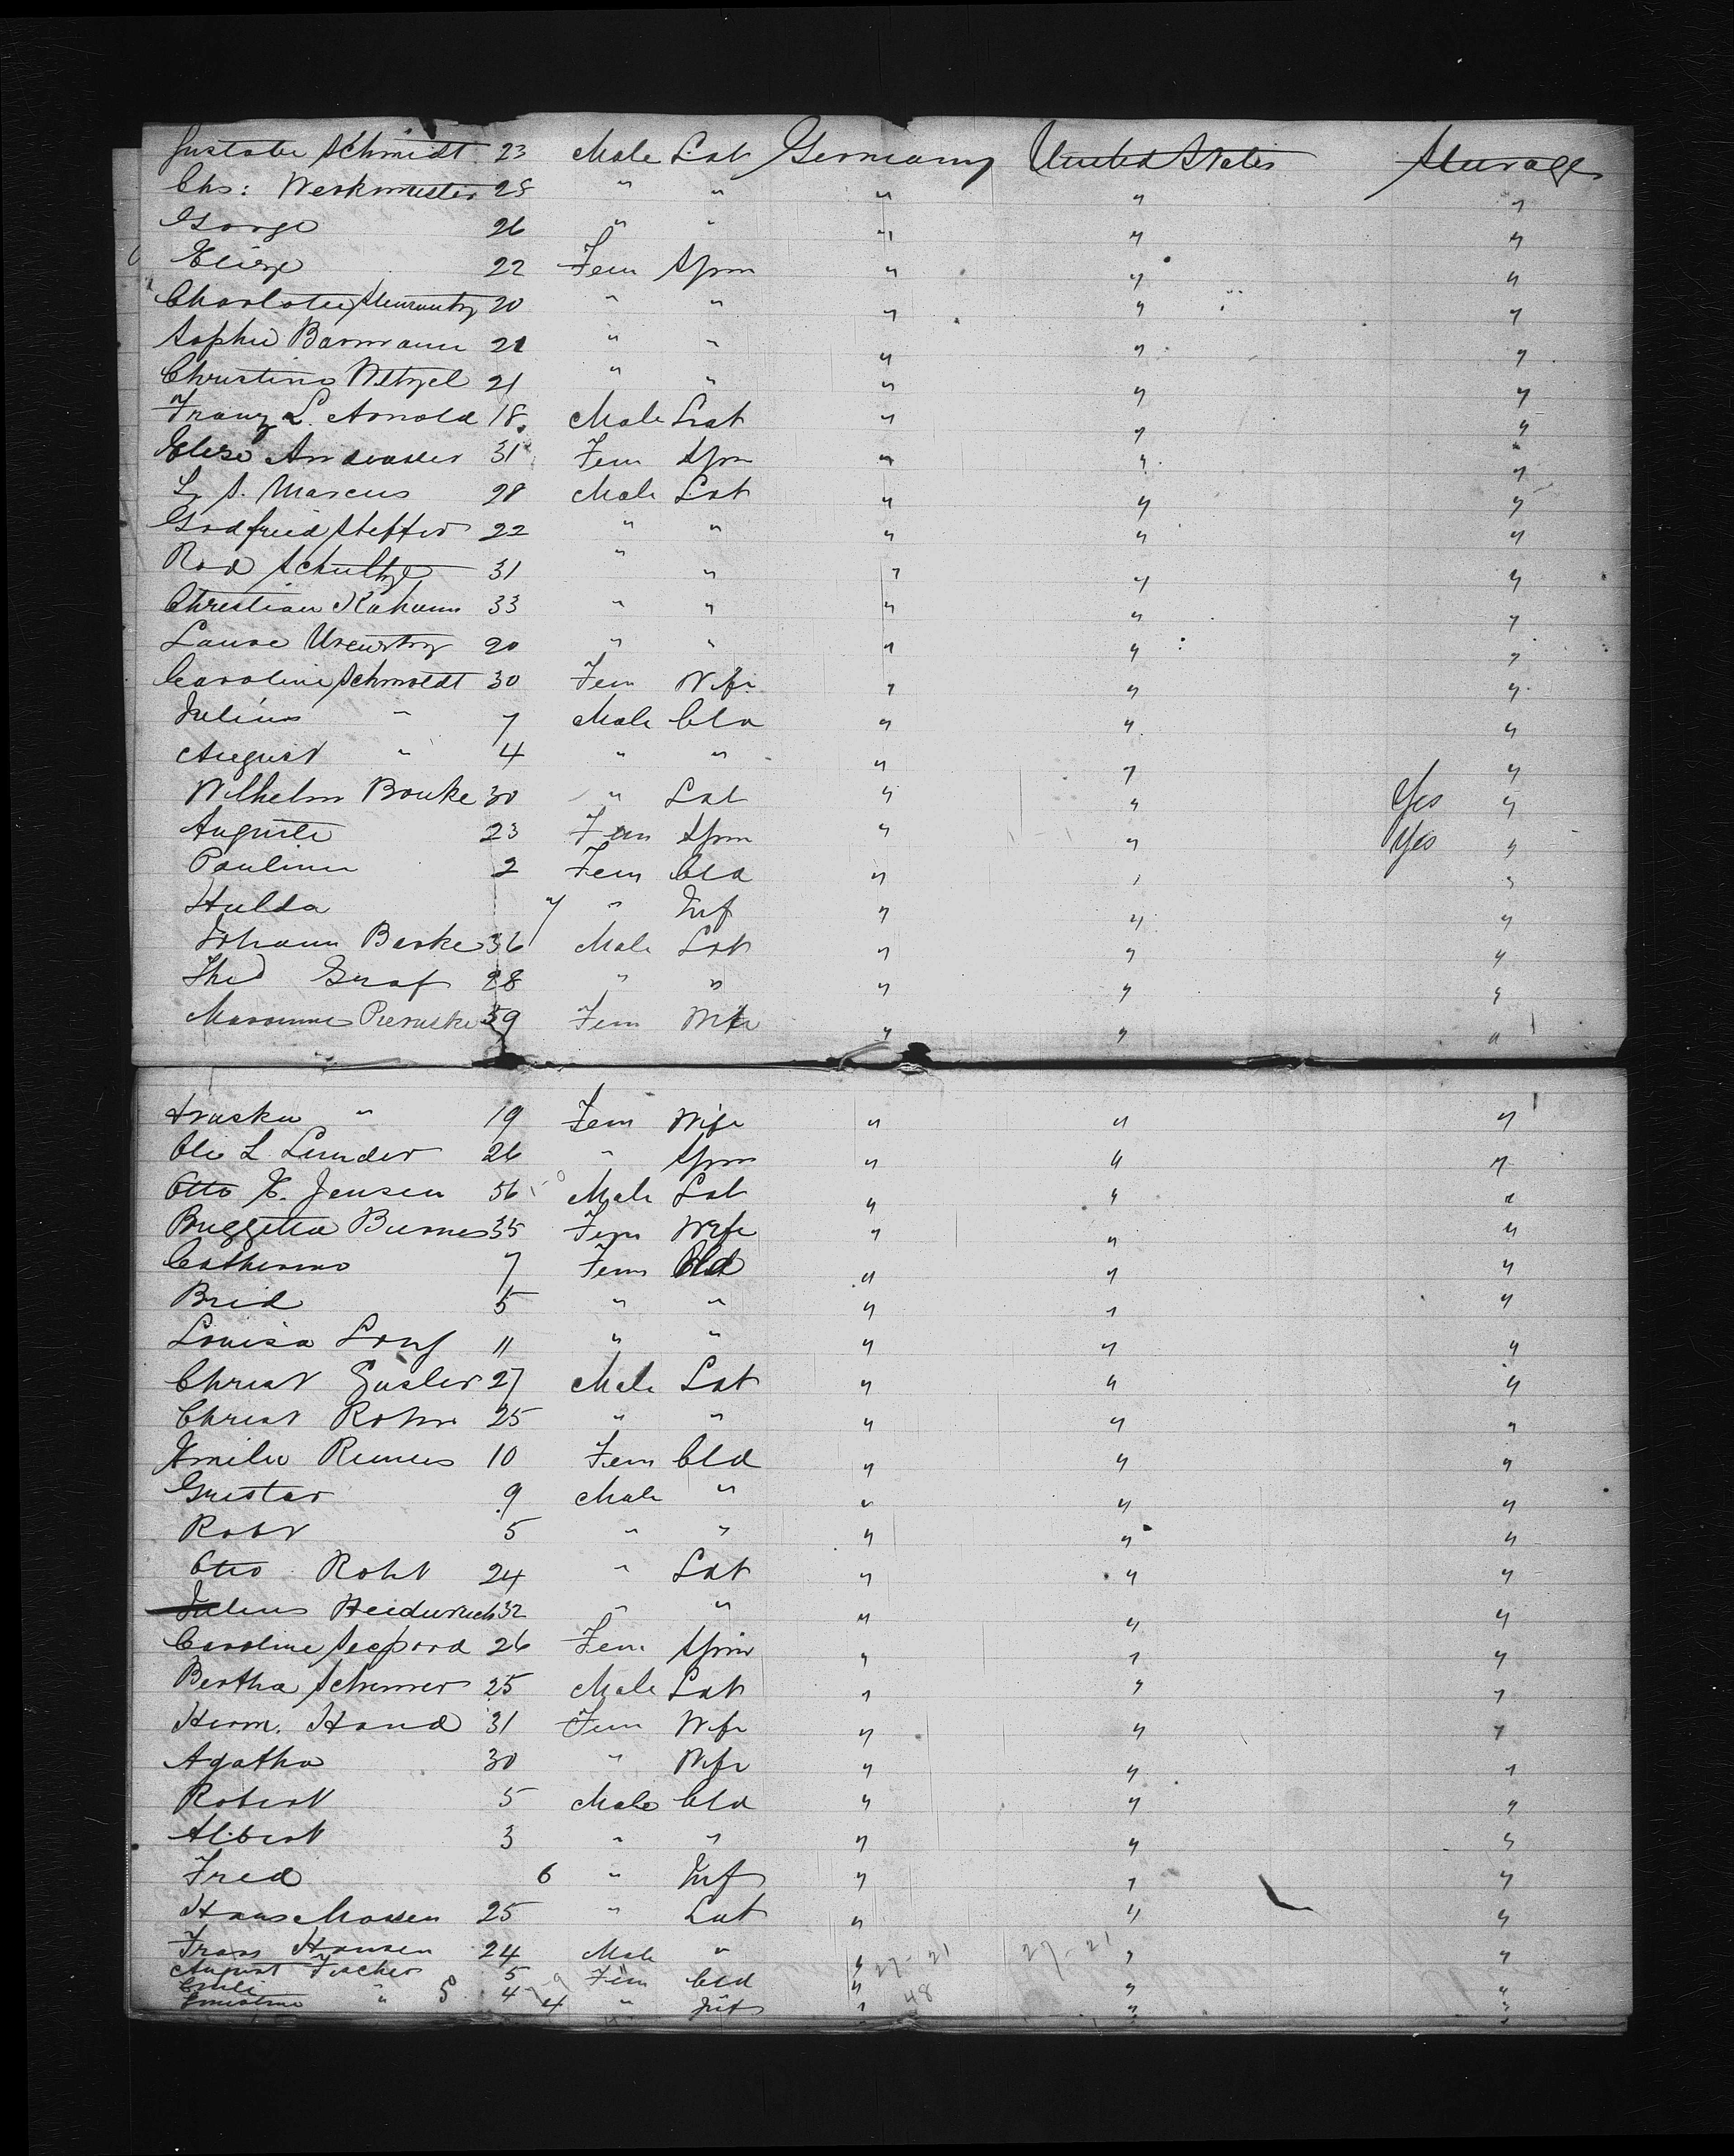 Gustave Schmidt 23 Male Lab Germany United States Steerage
Chs: Werkmeister 28 " " " " "
George 26 " " " " "
Elize 22 Fem Spin " " "
Charlotte 20 " " " " "
Sophie Barmann 21 " " " " "
Christina Wetzel 21 " " " " "
Franz L. Arnold 18 Male Lab " " "
Elise 31 Fem Spin " " "
L. S. Marcus 28 Male Lab " " "
Godfried Steffer 22 " " " " "
Rod Schultze 31 " " " " "
Christian 33 " " " " "
20 " " " " "
Caroline Schmoldt 30 Fem Wife " " "
Julius " 7 Male Cld " " "
August " 4 " " " " "
Wilhelm Bonke 30 " Lab " " Yes "
Auguste 23 Fem Spin " " Yes "
Pauline 2 Fem Cld " " "
Hulda 7 " Inf " " "
Johann Barke 36 Male Lab " " "
Thed Graf 28 " " " " "
39 Fem Wife " " "
" 19 Fem Wife " " "
Ole L. Lunder 26 " Spin " " "
Otto E. Jensen 56 Male Lab " " "
Briggetta Burnes 35 Fem Wife " " "
Catherine 7 Fem Cld " " "
Brid 5 " " " " "
Louisa Long 11 " " " " "
Christ Gusler 27 Male Lab " " "
Christ Rohm 25 " " " " "
Emilie Remus 10 Fem Cld " " "
Gustav 9 Male " " " "
Robt 5 " " " " "
Otto Roht 24 " Lab " " "
Julius Heidenrich 32 " " " " "
Caroline 26 Fem Spin " " "
Bertha Schirmer 25 Male Lab " " "
Herm. Hand 31 Fem Wife " " "
Agatha 30 " Wife " " "
Robert 5 Male Cld " " "
Albert 3 " " " " "
Fred 6 " Inf " " "
Hans Madsen 25 " Lab " " "
Frans Hansen 24 Male " " 27-21 27-21 " "
August Fischer 5 Fem Cld " " "
4 " 48 " "
Ernestine " 4 " Inf " " "